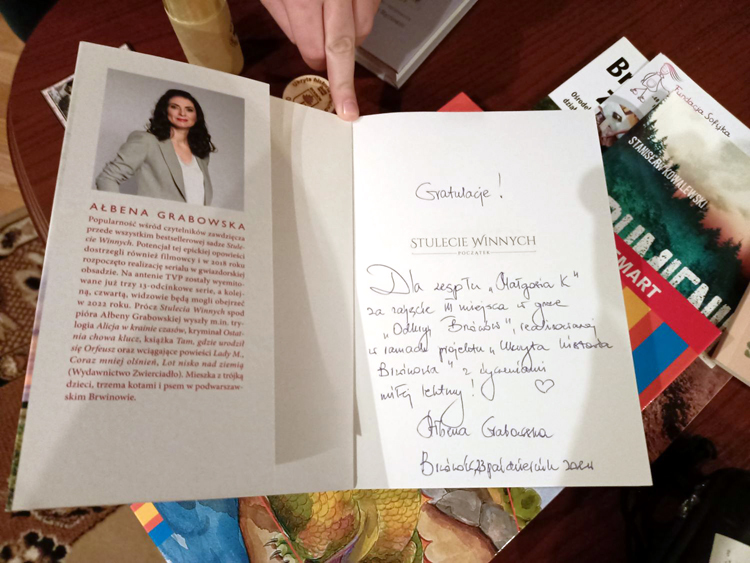 AŁBENA GRABOWSKA
Popularność wśród czytelników zawdzięcza
przede wszystkim bestsellerowej sadze Stule-
cie Winnych. Potencjał tej epickiej opowieści
dostrzegli również filmowcy i w 2018 roku
rozpoczęto realizację serialu w gwiazdorskiej
obsadzie. Na antenie TVP zostały wyemito-
wane już trzy 13-odcinkowe serie, a kolej-
ną, czwartą, widzowie będą mogli obejrzeć
w 2022 roku. Prócz Stulecia Winnych spod
pióra Ałbeny Grabowskiej wyszły m.in. try-
logia Alicja w krainie czasów, kryminał Ostat-
nia chowa klucz, książka Tam, gdzie urodził
się Orfeusz oraz wciągające powieści Lady M.,
Coraz mniej olśnień, Lot nisko nad ziemią
(Wydawnictwo Zwierciadło). Mieszka z trójką
dzieci, trzema kotami i psem w podwarszaw-
skim Brwinowie.
Gratulacje!
STULECIE WINNYCH
POCZĄTEK
Dla zespołu „Małgosia K"
za zajęcie III miejsca w grze
„Odkryj Brwinów", realizowanej
w ramach projektu „Ukryta historia
Brwinowa" z życzeniami
miłej lektury!
Ałbena Grabowska
Brwinów, 23 październik
Fundacja Sofijka
STANISŁAW KOWALEWSKI
SMART